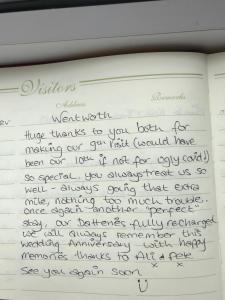 Visitors
Address
Remarks
Wentworth
Huge thanks to you both for
making our 9th visit (would have
been our 10th if not for ugly covid!)
so special. you always treat us so
well - always going that extra
mile, nothing too much trouble..
once again another "perfect"
stay, our batteries fully recharged
we will always remember this
wedding Anniversary with happy
memories thanks to Ali & Pete
x x
See you again soon